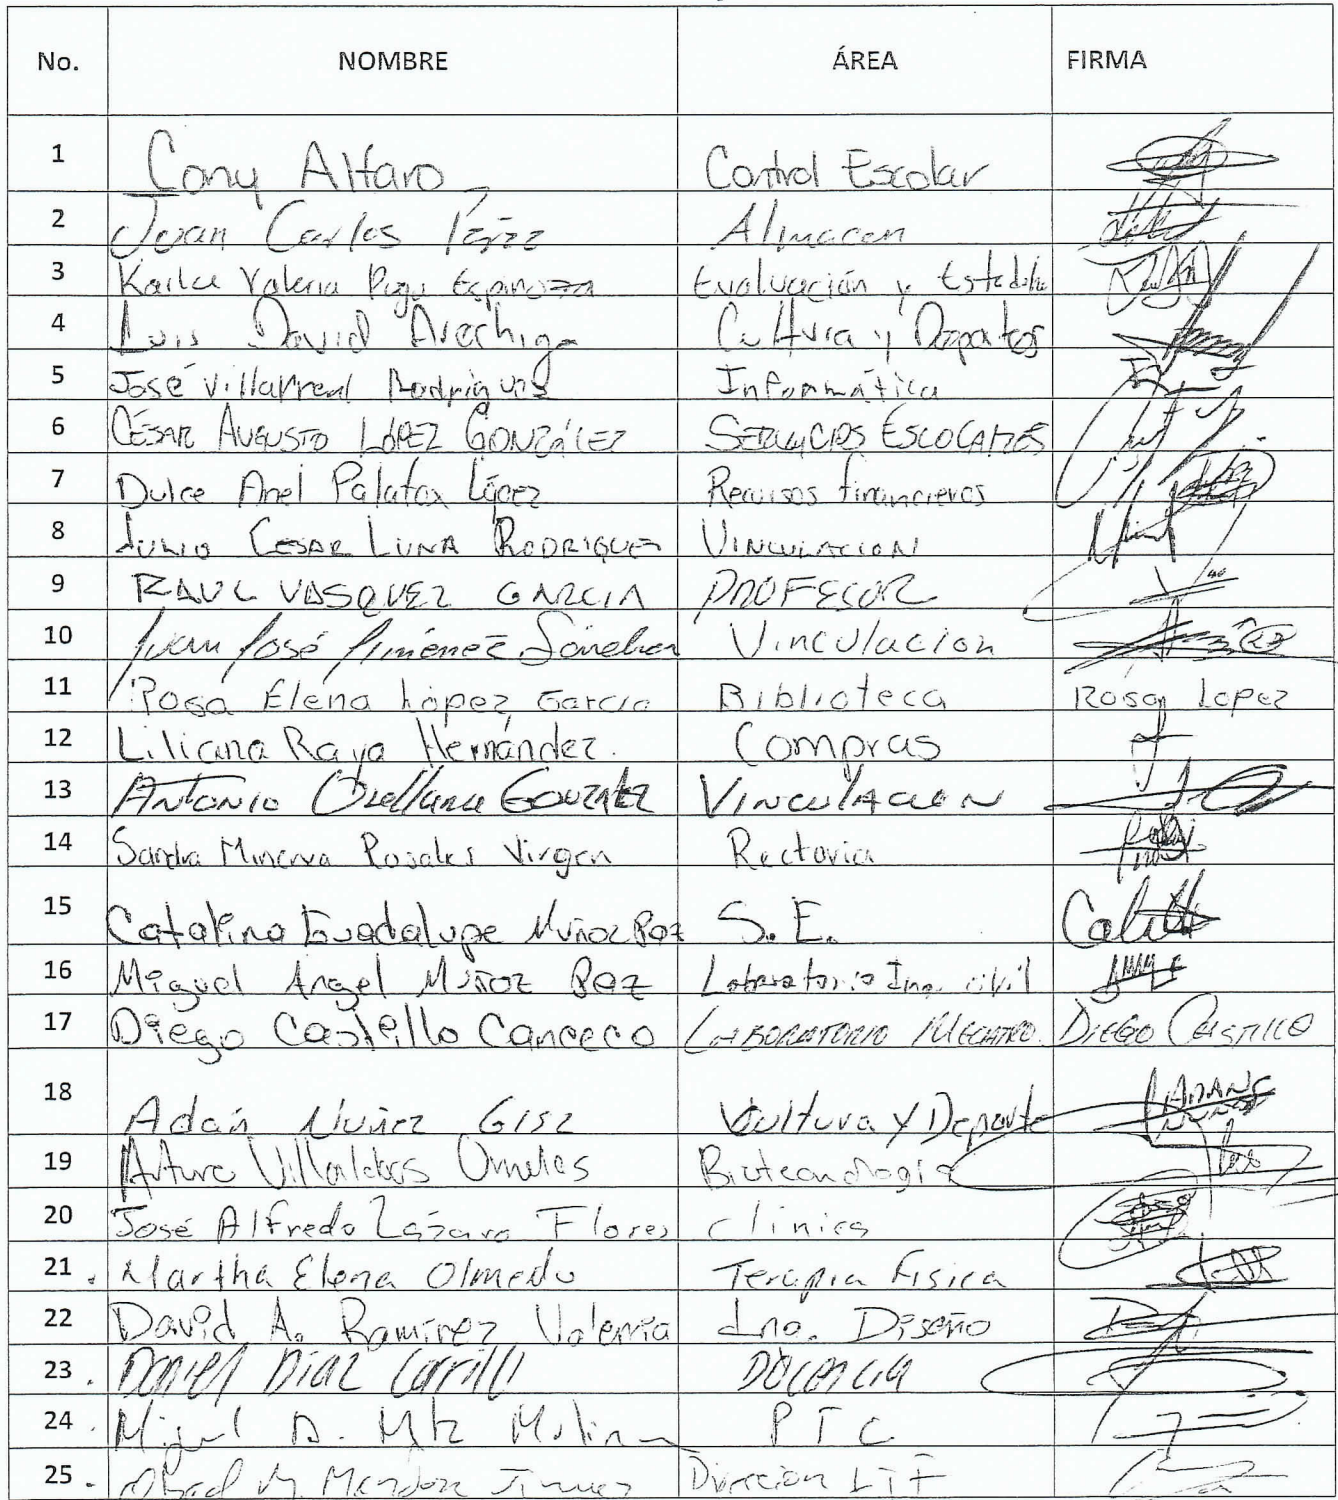 No. NOMBRE ÁREA FIRMA
1 Cony Alfaro Control Escolar
2 Juan Carlos Pérez Almacen
3 Karla Valeria Puga Espinoza Evaluación y Estadist
4 Luis David Arechiga Cultura y Deportes
5 José Villarreal Rodriguez Informática
6 CÉSAR AUGUSTO LÓPEZ GONZÁLEZ SERVICIOS ESCOLARES
7 Dulce Anel Palafox López Recursos financieros
8 JULIO CESAR LUNA RODRIGUEZ VINCULACION
9 RAUL VASQUEZ GARCIA PROFESOR
10 Juan José Jiménez Sánchez Vinculacion
11 Rosa Elena López Garcia Biblioteca Rosa Lopez
12 Liliana Raya Hernández. Compras
13 ANTONIO Orellana GONZALEZ VINCULACION
14 Sandra Minerva Rosales Virgen Rectoria
15 Catalina Guadalupe Muñoz Paz S. E.
16 Miguel Angel Muñoz Paz Laboratorio Ing. civil
17 Diego Castillo Canceco LABORATORIO MECATRO. DIEGO CASTILLO
18 Adán Nuñez G152 Cultura y Deporte ADAN NUÑEZ
19 Arturo Villalobos Ornelas Biotecnologia
20 José Alfredo Lázaro Flores clinica
21 . Martha Elena Olmedo Terapia Fisica
22 David A. Ramírez Valencia Ing. Diseño
23 . Daniel Diaz Carrillo Docencia
24 . Miguel A. Mtz Molina P T C
25 . M. Mendoza Direccion LTF